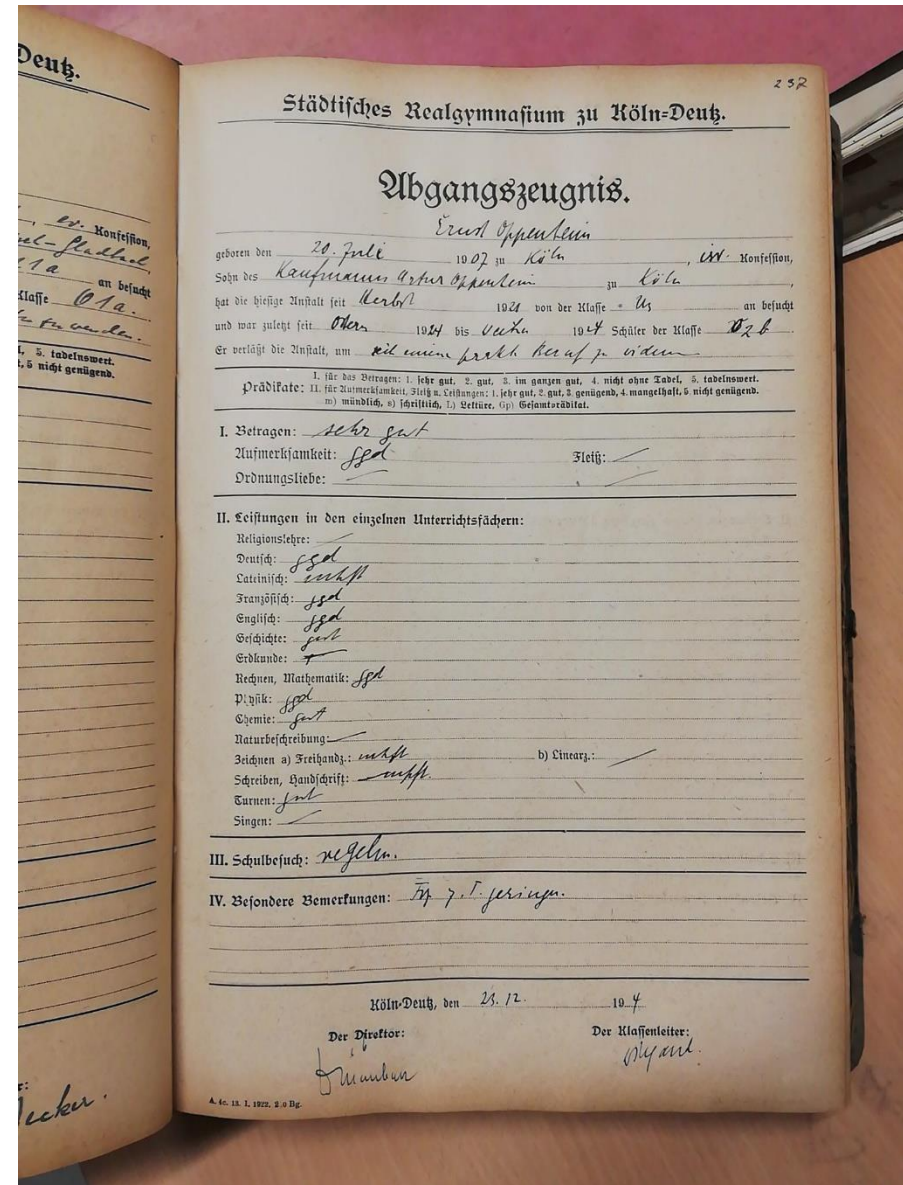 Deutz.
ev. Konfession,
Gladbach,
an besucht
Klasse O1a.
zu werden.
5. tadelnswert.
5 nicht genügend.
237
Städtisches Realgymnasium zu Köln=Deutz.
Abgangszeugnis.
Ernst Oppenheim
geboren den 20. Juli 1907 zu Köln, isr. Konfession,
Sohn des Kaufmanns Artur Oppenheim zu Köln,
hat die hiesige Anstalt seit Herbst 1921 von der Klasse an besucht
und war zuletzt seit Ostern 1924 bis 1924 Schüler der Klasse
Er verläßt die Anstalt, um prakt. Beruf zu widmen
Prädikate: I. für das Betragen: 1. sehr gut, 2. gut, 3. im ganzen gut, 4. nicht ohne Tadel, 5. tadelnswert.
II. für Aufmerksamkeit, Fleiß u. Leistungen: 1. sehr gut, 2. gut, 3. genügend, 4. mangelhaft, 5. nicht genügend.
m) mündlich, s) schriftlich, L) Lektüre, Gp) Gesamtprädikat.
I. Betragen: sehr gut
Aufmerksamkeit: ggd Fleiß:
Ordnungsliebe:
II. Leistungen in den einzelnen Unterrichtsfächern:
Religionslehre:
Deutsch: ggd
Lateinisch: mhft
Französisch: ggd
Englisch: ggd
Geschichte: gut
Erdkunde:
Rechnen, Mathematik: ggd
Physik: ggd
Chemie: gut
Naturbeschreibung:
Zeichnen a) Freihandz.: mhft b) Linearz.:
Schreiben, Handschrift: mhft.
Turnen: gut
Singen:
III. Schulbesuch: regelm.
IV. Besondere Bemerkungen:
Köln=Deutz, den 23. 12. 19 4
Der Direktor: Der Klassenleiter:
A. 4c. 13. 1. 1922. 2.0 Bg.